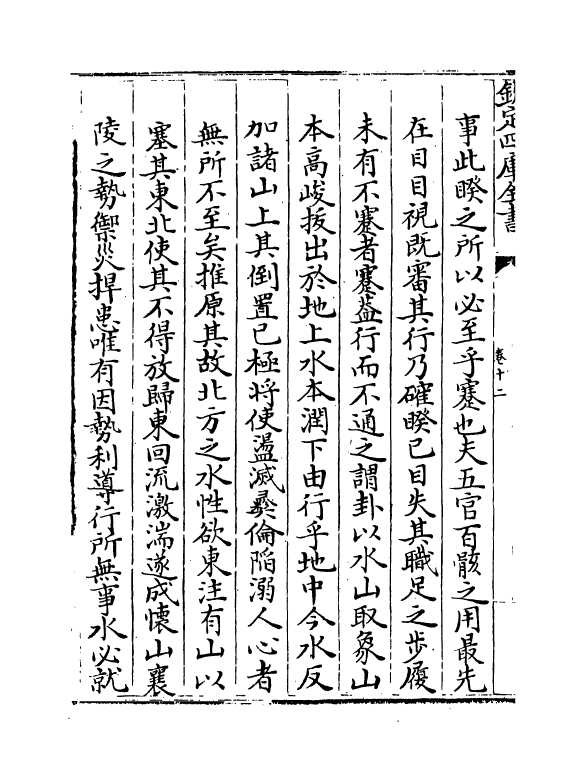 欽定四庫全書
卷十二
事此睽之所以必至乎蹇也夫五官百骸之用最先
在目目視既審其行乃確睽已目失其職足之步履
未有不蹇者蹇葢行而不通之謂卦以水山取象山
本高峻拔出於地上水本潤下由行乎地中今水反
加諸山上其倒置已極將使盪滅彜倫陷溺人心者
無所不至矣推原其故北方之水性欲東注有山以
塞其東北使其不得放歸東回流激湍遂成懷山襄
陵之勢禦災捍患唯有因勢利導行所無事水必就